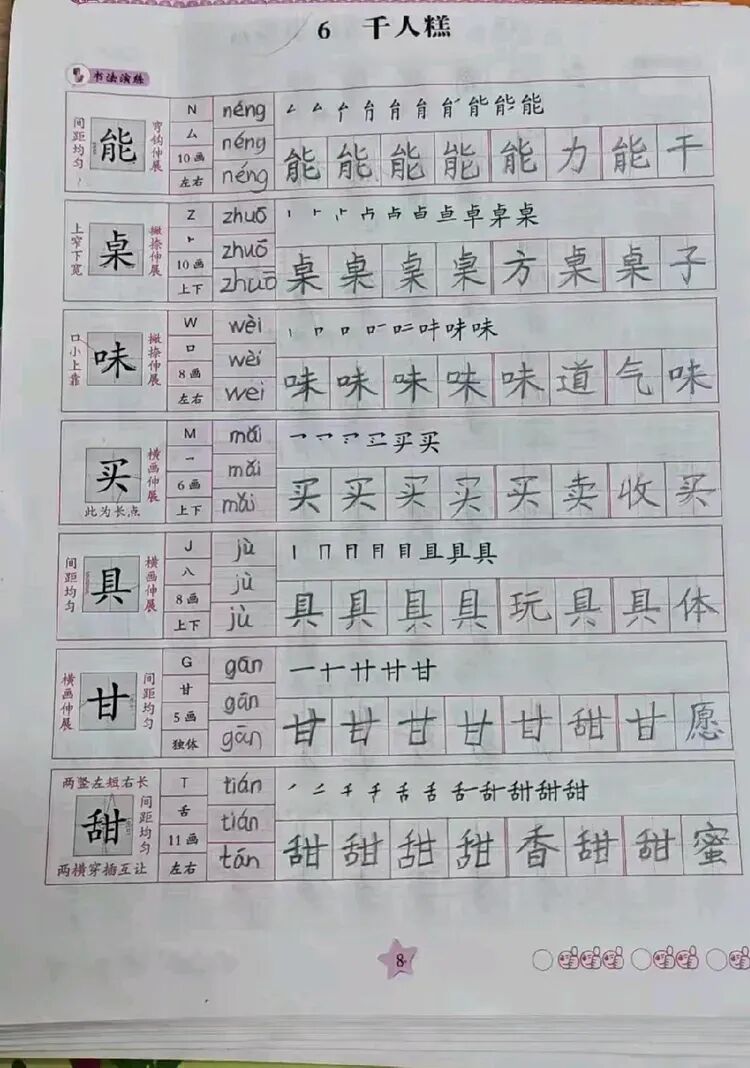 6 千人糕
书法演练
间距均匀 能 弯钩伸展 N 厶 10画 左右
néng néng néng
能
能 能 能 能 能 力 能 干
上窄下宽 桌 撇捺伸展 Z ⺊ 10画 上下
zhuō zhuō zhuō
桌
桌 桌 桌 桌 方 桌 桌 子
口小上靠 味 撇捺伸展 W 口 8画 左右
wèi wèi wei
味
味 味 味 味 味 道 气 味
买 横画伸展 此为长点 M 乛 6画 上下
mǎi mǎi mǎi
买
买 买 买 买 买 卖 收 买
间距均匀 具 横画伸展 J 八 8画 上下
jù jù jù
具
具 具 具 具 玩 具 具 体
横画伸展 甘 间距均匀 G 甘 5画 独体
gān gān gān
一 十 廿 甘 甘
甘 甘 甘 甘 甘 甜 甘 愿
两竖左短右长 甜 间距均匀 两横穿插互让 T 舌 11画 左右
tián tián tán
甜
甜 甜 甜 甜 香 甜 甜 蜜
8